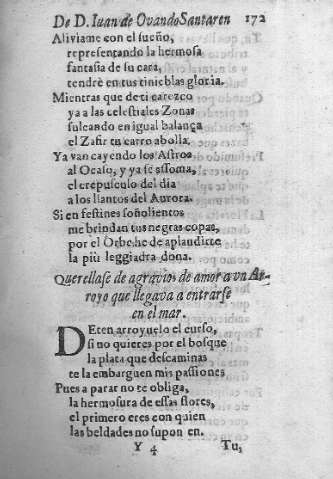 De D. Iuan de Ovando Santaren 172
Aliviame con el sueño,
representando la hermosa
fantasia de su cara,
tendrè en tus tinieblas gloria.
Mientras que de ti carezco
ya a las celestiales Zonas
sulcando en igual balança
el Zafir tu carro abolla.
Ya van cayendo los Astros
al Ocaso, y ya se assoma,
el crepusculo del dia
a los llantos del Aurora.
Si en festines soñolientos
me brindan tus negras copas,
por el Orbe he de aplaudirte
la più leggiadra dona.
Querellase de agravios de amor a vn Ar-
royo que llegava a entrarse
en el mar.
DEten arroyuelo el curso,
si no quieres por el bosque
la plata que descaminas
te la embarguen mis passiones
Pues a parar no te obliga,
la hermosura de essas flores,
el primero eres con quien
las beldades no supon en.
Y 4 Tu,